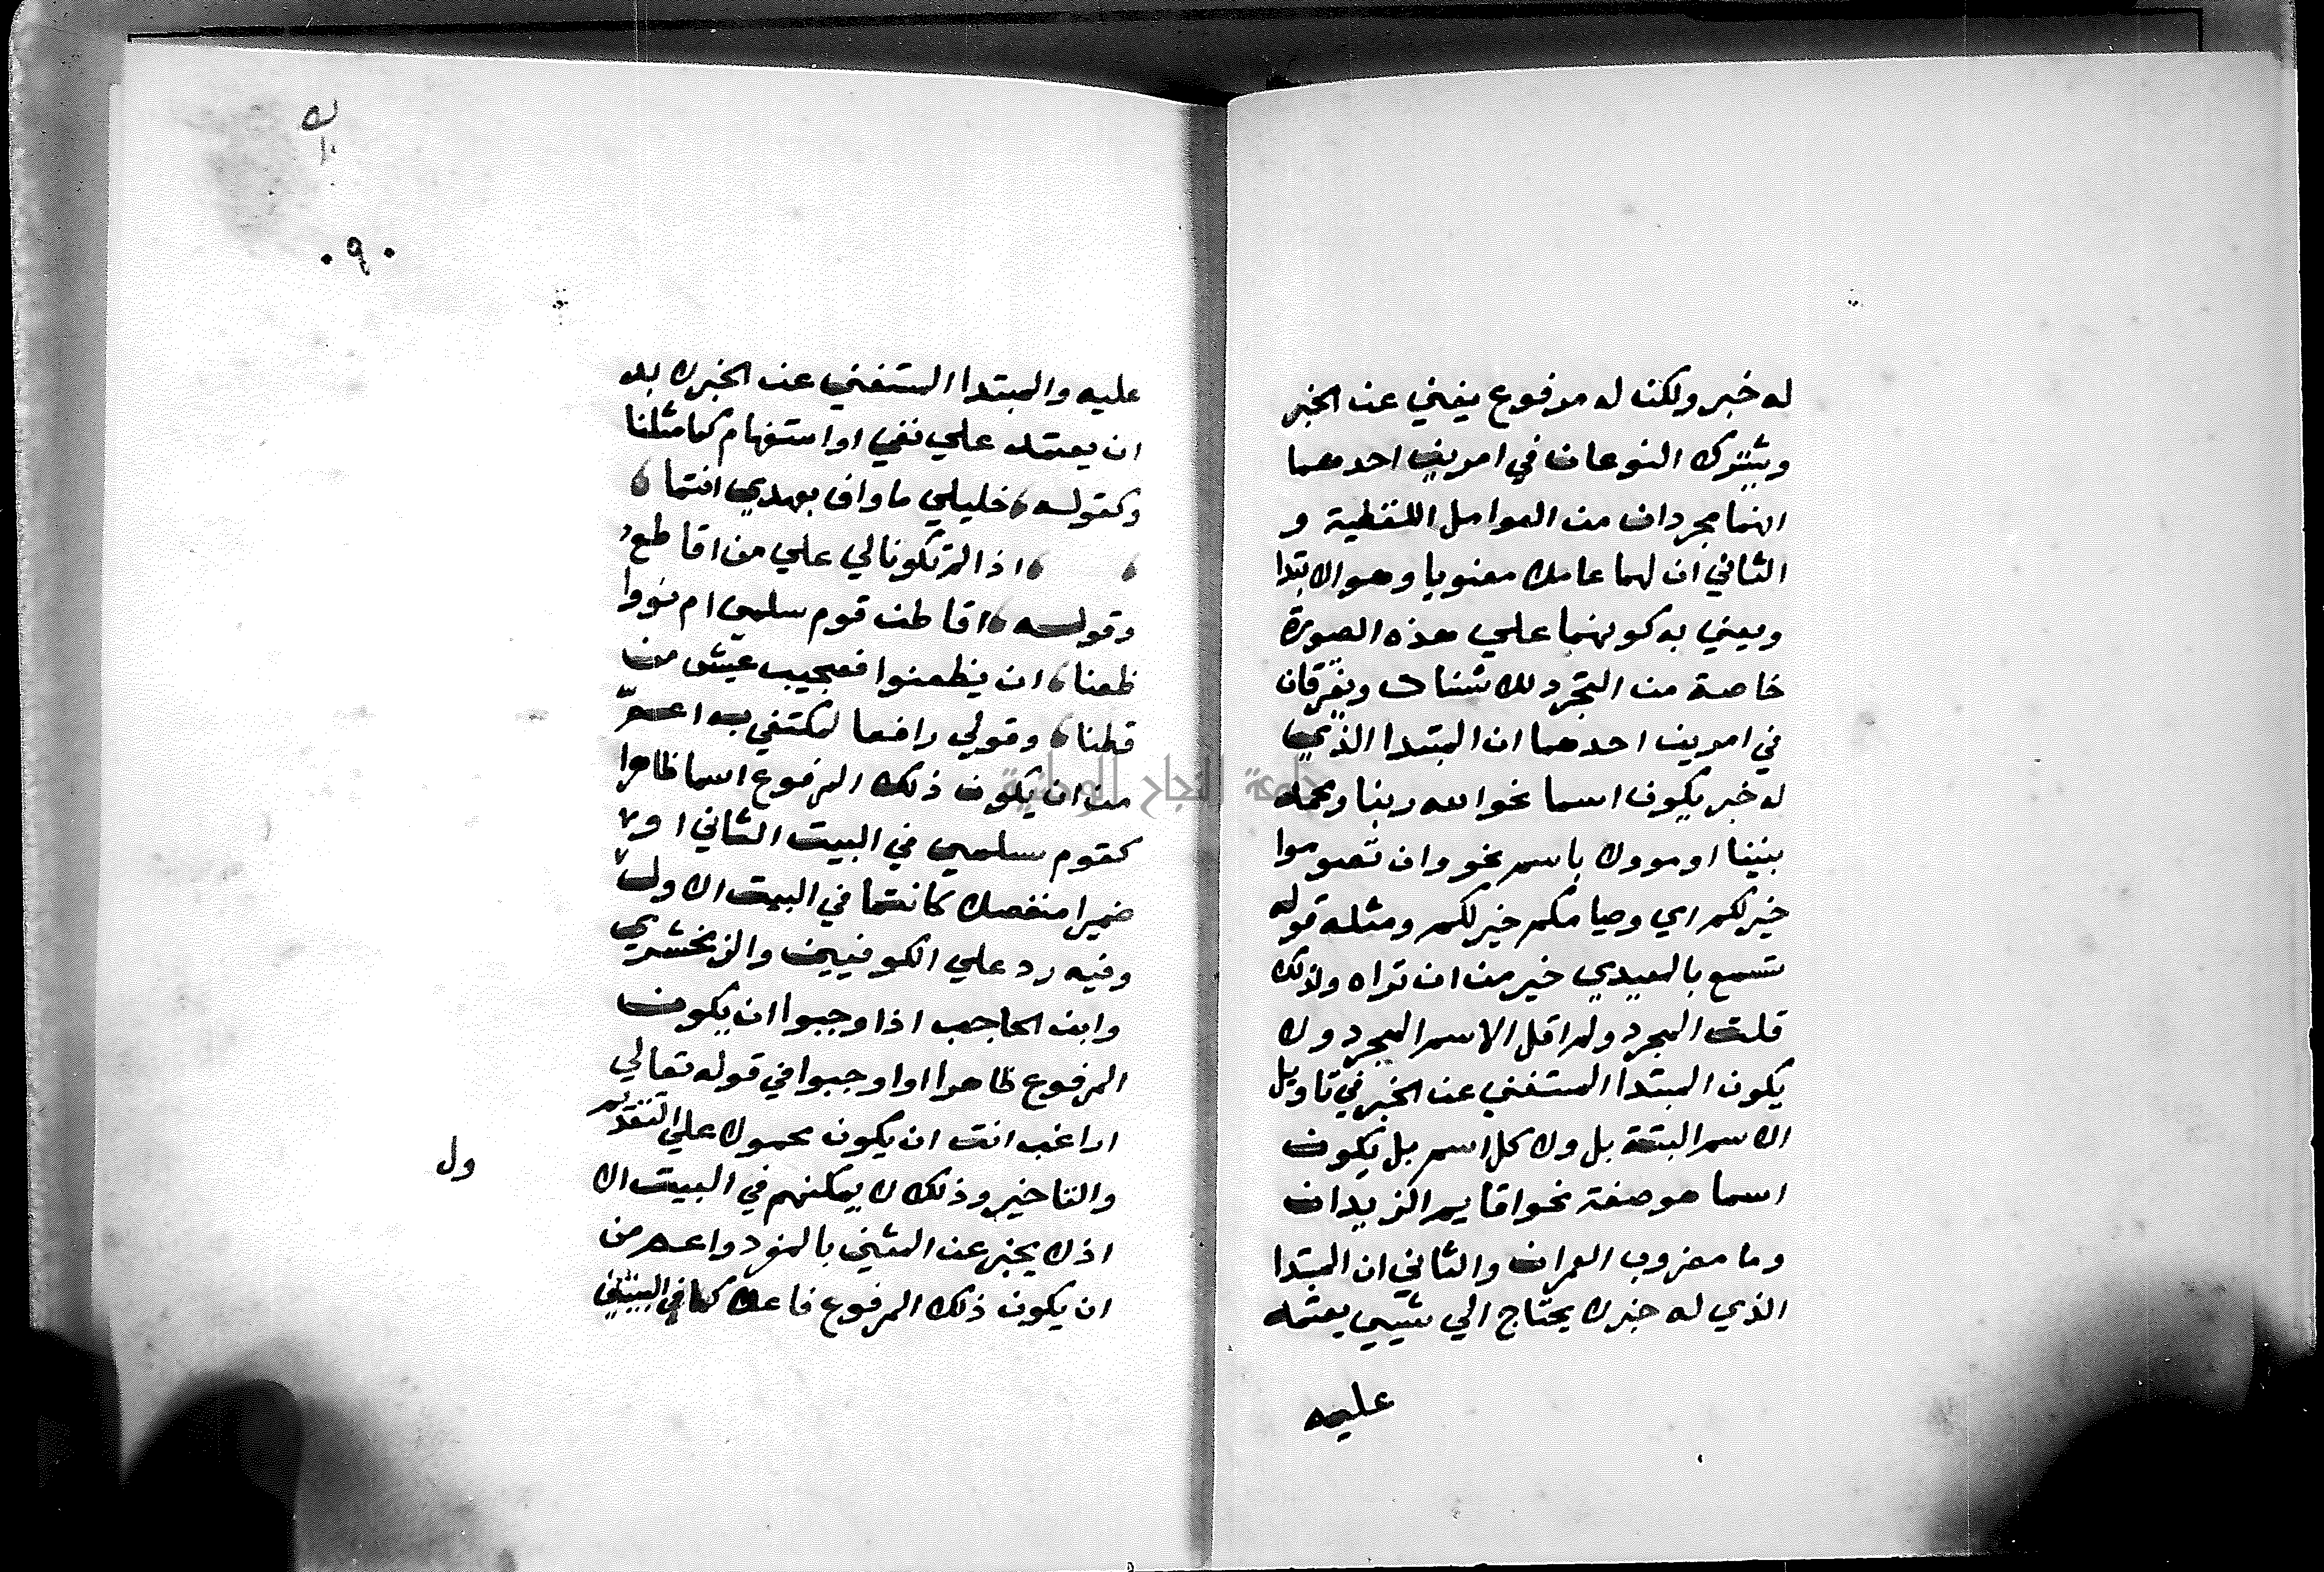 له خبر ولكن له مرفوع يغني عن الخبر
ويشترك النوعان في امرين احدهما
انهما مجردان من العوامل اللفظية و
الثاني ان لهما عاملا معنويا وهو الابتدا
ويعني به كونهما علي هذه الصورة
خاصة من التجرد للاسناد ويفرقان
في امرين احدهما ان المبتدا الذي
له خبر يكون اسما نحو الله ربنا ومحمد
نبينا او موول باسم نحو وان تصوموا
خير لكم اي وصيامكم خير لكم ومثله قوله
تسمع بالمعيدي خير من ان تراه ولذلك
قلت المجرد ولم اقل الاسم المجرد ولا
يكون المبتدا المستغني عن الخبر في تاويل
الاسم البتة بل ولا كل اسم بل يكون
اسما هو صفة نحو اقايم الزيدان
وما مضروب العمران والثاني ان المبتدا
الذي له خبر لا يحتاج الي شيي يعتمد
عليه
عليه والمبتدا المستغني عن الخبر لا بد
ان يعتمد علي نفي او استفهام كما مثلنا
وكقوله خليلي ما واف بعهدي انتما
اذا لم تكونا لي علي من اقاطع
وقوله اقاطن قوم سلمي ام نووا
ظعنا ان يظعنوا فعجيب عيش من
قطنا وقولي رافعا لمكتفي به اعم
من ان يكون ذلك المرفوع اسما ظاهرا
كقوم سلمي في البيت الثاني او
ضميرا منفصلا كانتما في البيت الاول
وفيه رد علي الكوفيين والزمخشري
وابن الحاجب اذا وجبوا ان يكون
المرفوع ظاهرا اواوجبوا في قوله تعالي
اراغب انت ان يكون محمولا علي التقديم
والتاخير وذلك لا يمكنهم في البيت الا
ول
اذ لا يخبر عن المثني بالمفرد واعم من
ان يكون ذلك المرفوع فاعلا كما في البيتين
٠٩٠
جامعة النجاح الوطنية